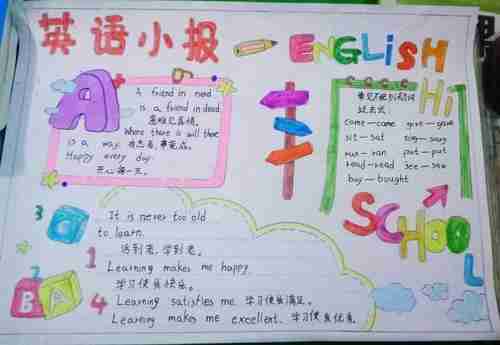 英语小报
ENGLISH
A friend in need
is a friend in deed
患难见真情。
Where there is a will there
is a way. 有志者,事竟成。
Happy every day.
开心每一天。
常见不规则动词
过去式:
come—came give—gave
sit—sat sing—sang
run—ran put—put
read—read see—saw
buy—bought
Hi
SCHOOL
It is never too old
to learn.
活到老,学到老。
Learning makes me happy.
学习使我快乐。
Learning satisfies me. 学习使我满足。
Learning makes me excellent. 学习使我优秀。
A
3
C
1
2
B
A
4